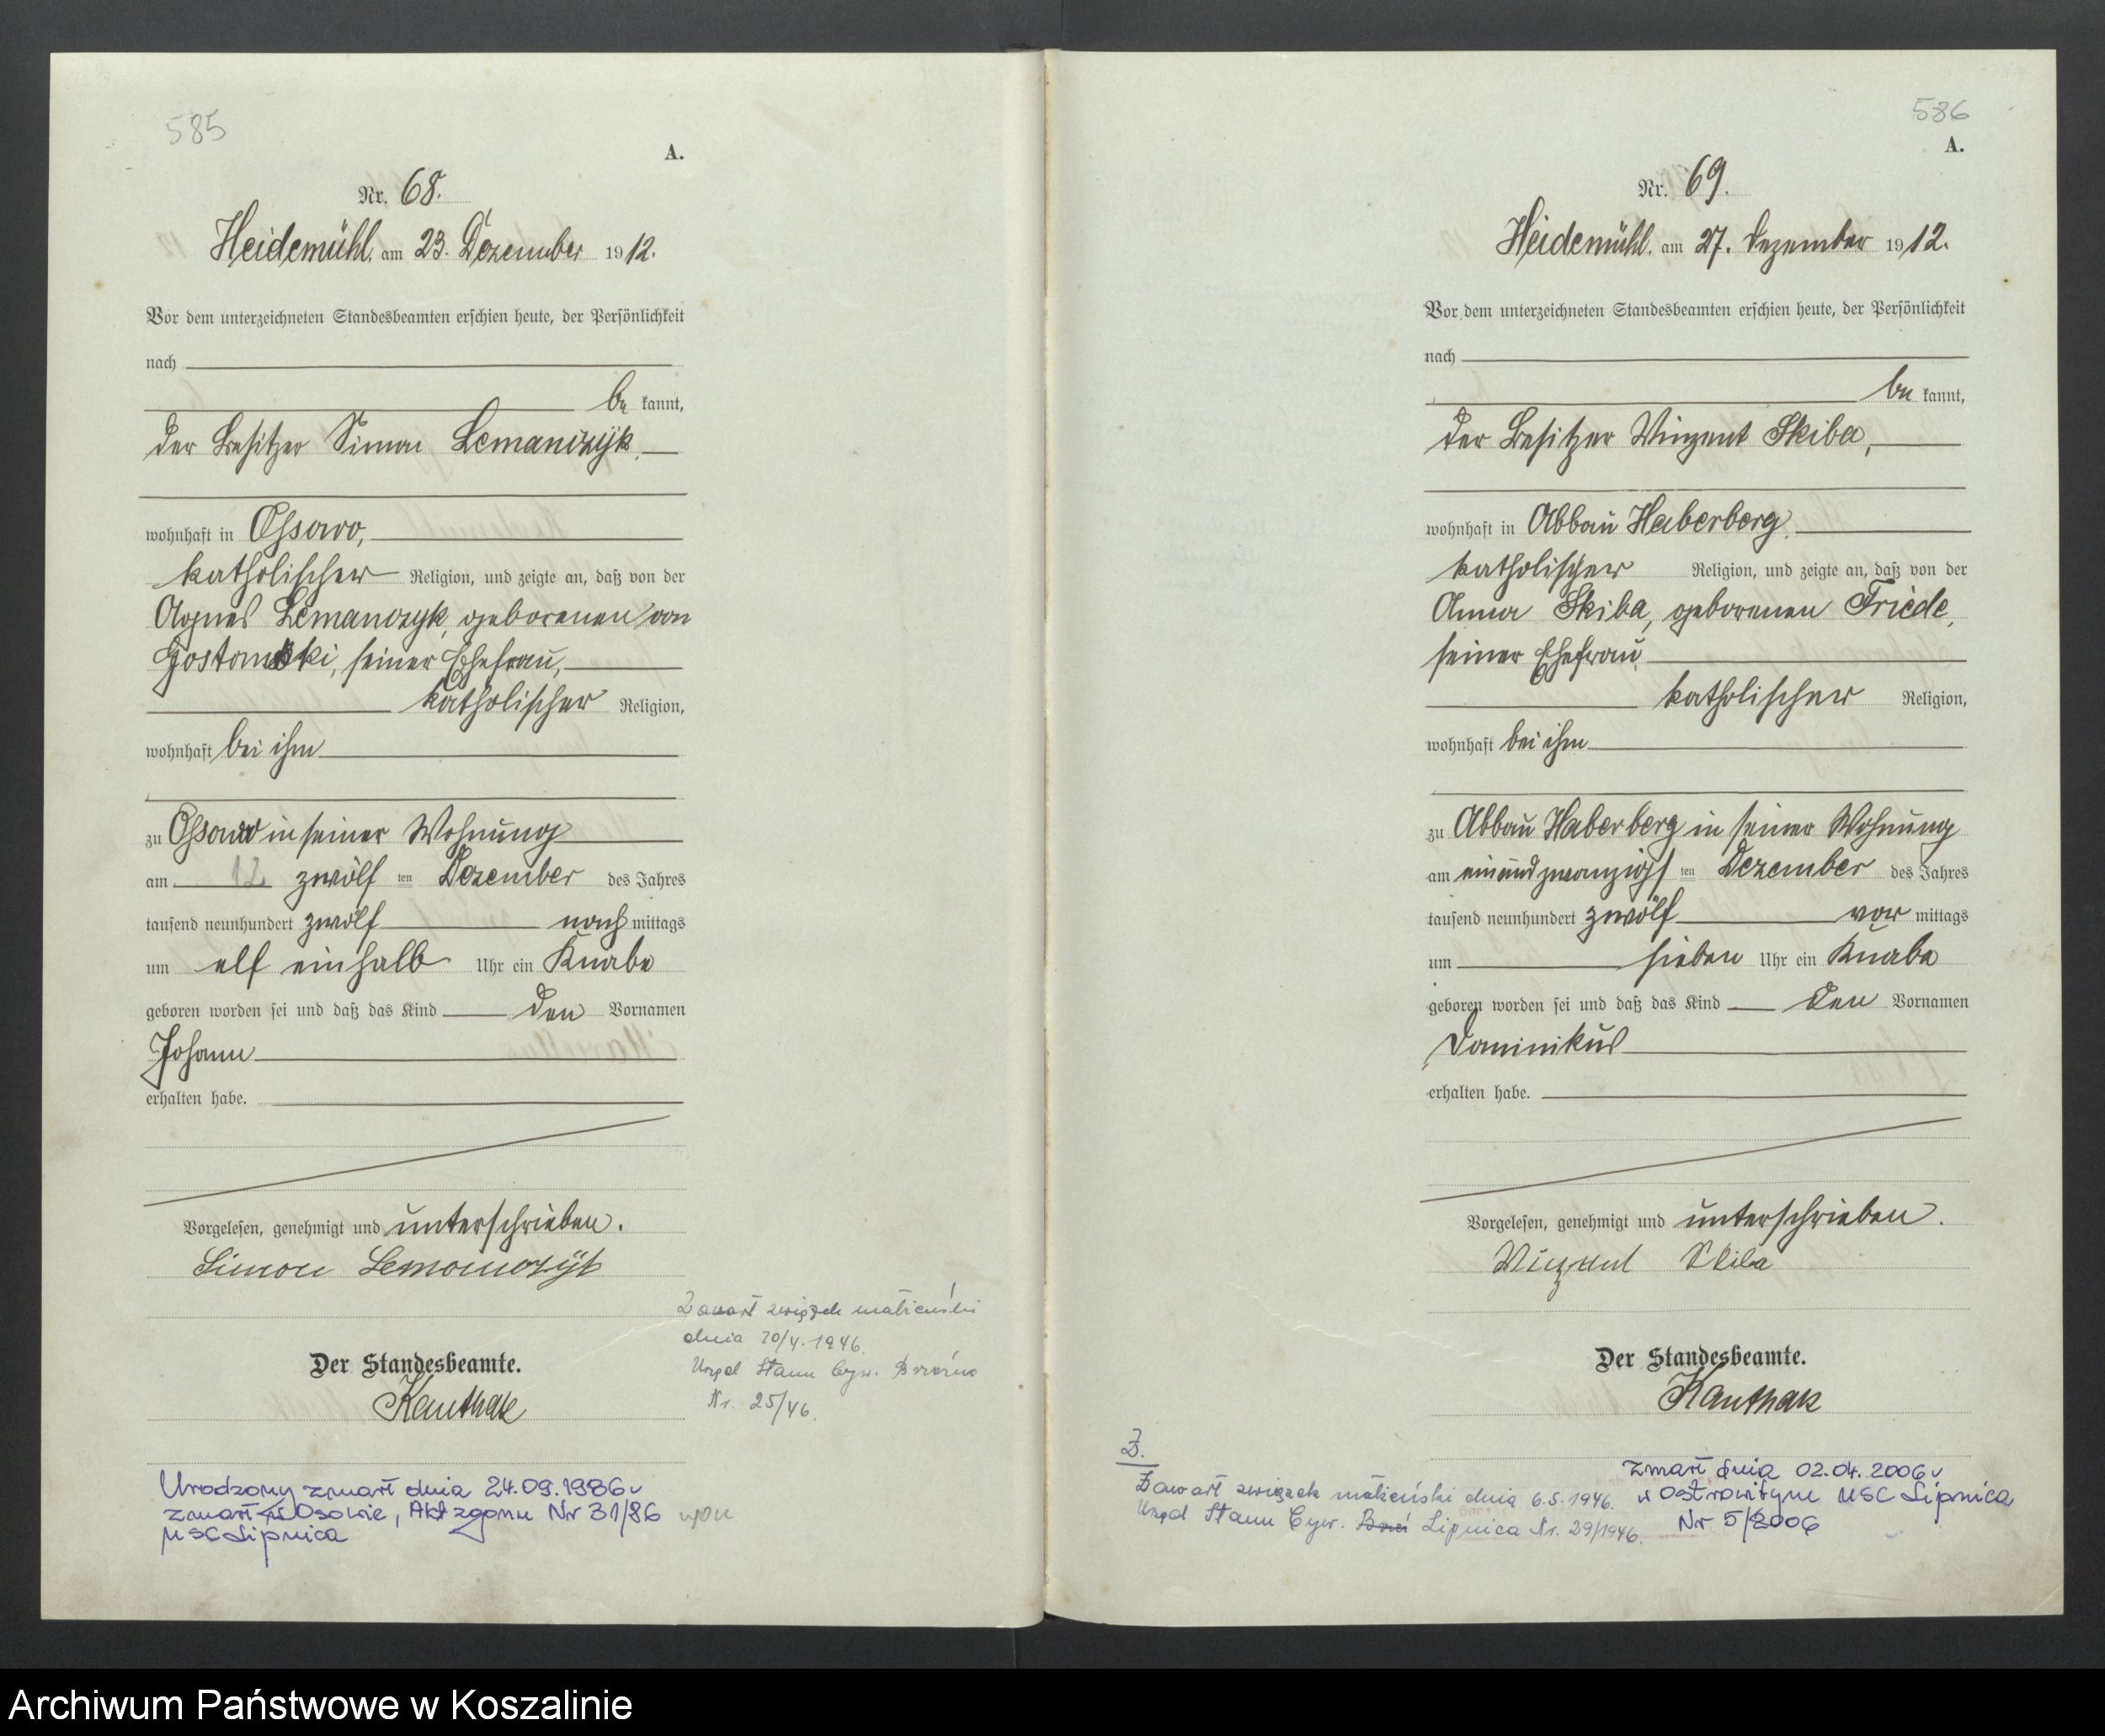 585
A.
Nr. 68.
Heidemühl, am 23. Dezember 1912.
Vor dem unterzeichneten Standesbeamten erschien heute, der Persönlichkeit
nach
be kannt,
der Besitzer Simon Lemanczyk,
wohnhaft in Ossowo,
katholischer Religion, und zeigte an, daß von der
Agnes Lemanczyk, geborenen von
Gostomski, seiner Ehefrau,
katholischer Religion,
wohnhaft bei ihm
zu Ossowo in seiner Wohnung
am 12 zwölf ten Dezember des Jahres
tausend neunhundert zwölf nach mittags
um elf einhalb Uhr ein Knabe
geboren worden sei und daß das Kind den Vornamen
Johann
erhalten habe.
Vorgelesen, genehmigt und unterschrieben.
Simon Lemanczyk
Der Standesbeamte.
Kauthak
Zawarł związek małżeński
dnia 20/4.1946.
Urząd Stanu Cyw. Brzeźno
Nr. 25/46.
Urodzony zmarł dnia 24.09.1986
zmarł w Osowie, Akt zgonu Nr 31/86
USC Lipnica
586
A.
Nr. 69.
Heidemühl, am 27. Dezember 1912.
Vor dem unterzeichneten Standesbeamten erschien heute, der Persönlichkeit
nach
be kannt,
der Besitzer Vinzent Skiba,
wohnhaft in Abbau Haberberg,
katholischer Religion, und zeigte an, daß von der
Anna Skiba, geborenen Friede,
seiner Ehefrau,
katholischer Religion,
wohnhaft bei ihm
zu Abbau Haberberg in seiner Wohnung
am einundzwanzigs ten Dezember des Jahres
tausend neunhundert zwölf vor mittags
um sieben Uhr ein Knabe
geboren worden sei und daß das Kind den Vornamen
Dominikus
erhalten habe.
Vorgelesen, genehmigt und unterschrieben.
Vinzent Skiba
Der Standesbeamte.
Kauthak
Z.
Zawarł związek małżeński dnia 6.5.1946.
Urząd Stanu Cyw. Lipnica Nr. 29/1946.
Zmarł dnia 02.04.2006
w Ostrowitym USC Lipnica
Nr 5/2006
Archiwum Państwowe w Koszalinie